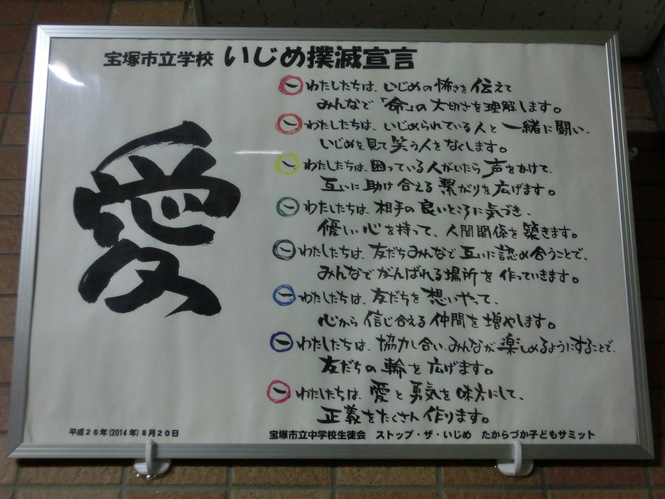 宝塚市立学校 いじめ撲滅宣言
愛
一 わたしたちは、いじめの怖さを伝えて
みんなで「命」の大切さを理解します。
一 わたしたちは、いじめられている人と一緒に闘い、
いじめを見て笑う人をなくします。
一 わたしたちは、困っている人がいたら声をかけて、
互いに助け合える繋がりを広げます。
一 わたしたちは、相手の良いところに気づき、
優しい心を持って、人間関係を築きます。
一 わたしたちは、友だちみんなで互いに認め合うことで、
みんなでがんばれる場所を作っていきます。
一 わたしたちは、友だちを想いやって、
心から信じ合える仲間を増やします。
一 わたしたちは、協力し合い、みんなが楽しめるようにすることで、
友だちの輪を広げます。
一 わたしたちは、愛と勇気を味方にして、
正義をたくさん作ります。
平成26年(2014年)8月20日
宝塚市立中学校生徒会 ストップ・ザ・いじめ たからづか子どもサミット